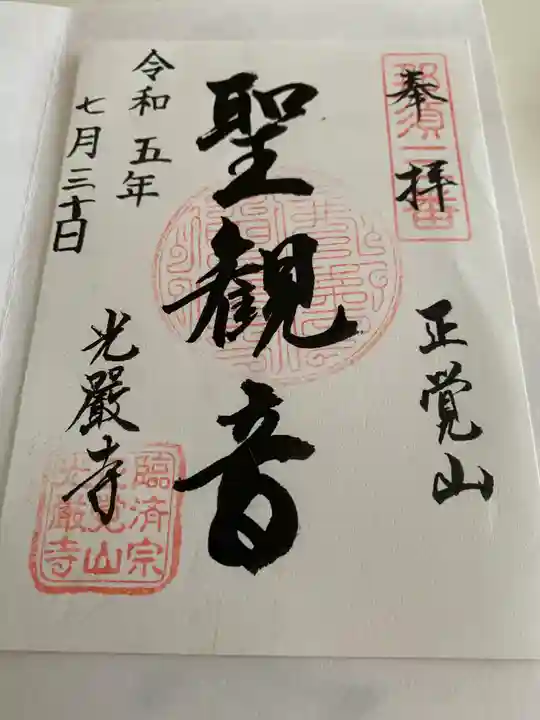 奉拝
正覚山
聖観音
令和五年
七月三十日
光厳寺
臨済宗
正覚山
光厳寺